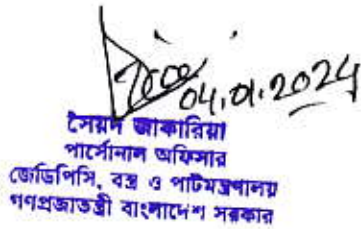 04.01.2024
সৈয়দ জাকারিয়া
পার্সোনাল অফিসার
জেডিপিসি, বস্ত্র ও পাটমন্ত্রণালয়
গণপ্রজাতন্ত্রী বাংলাদেশ সরকার